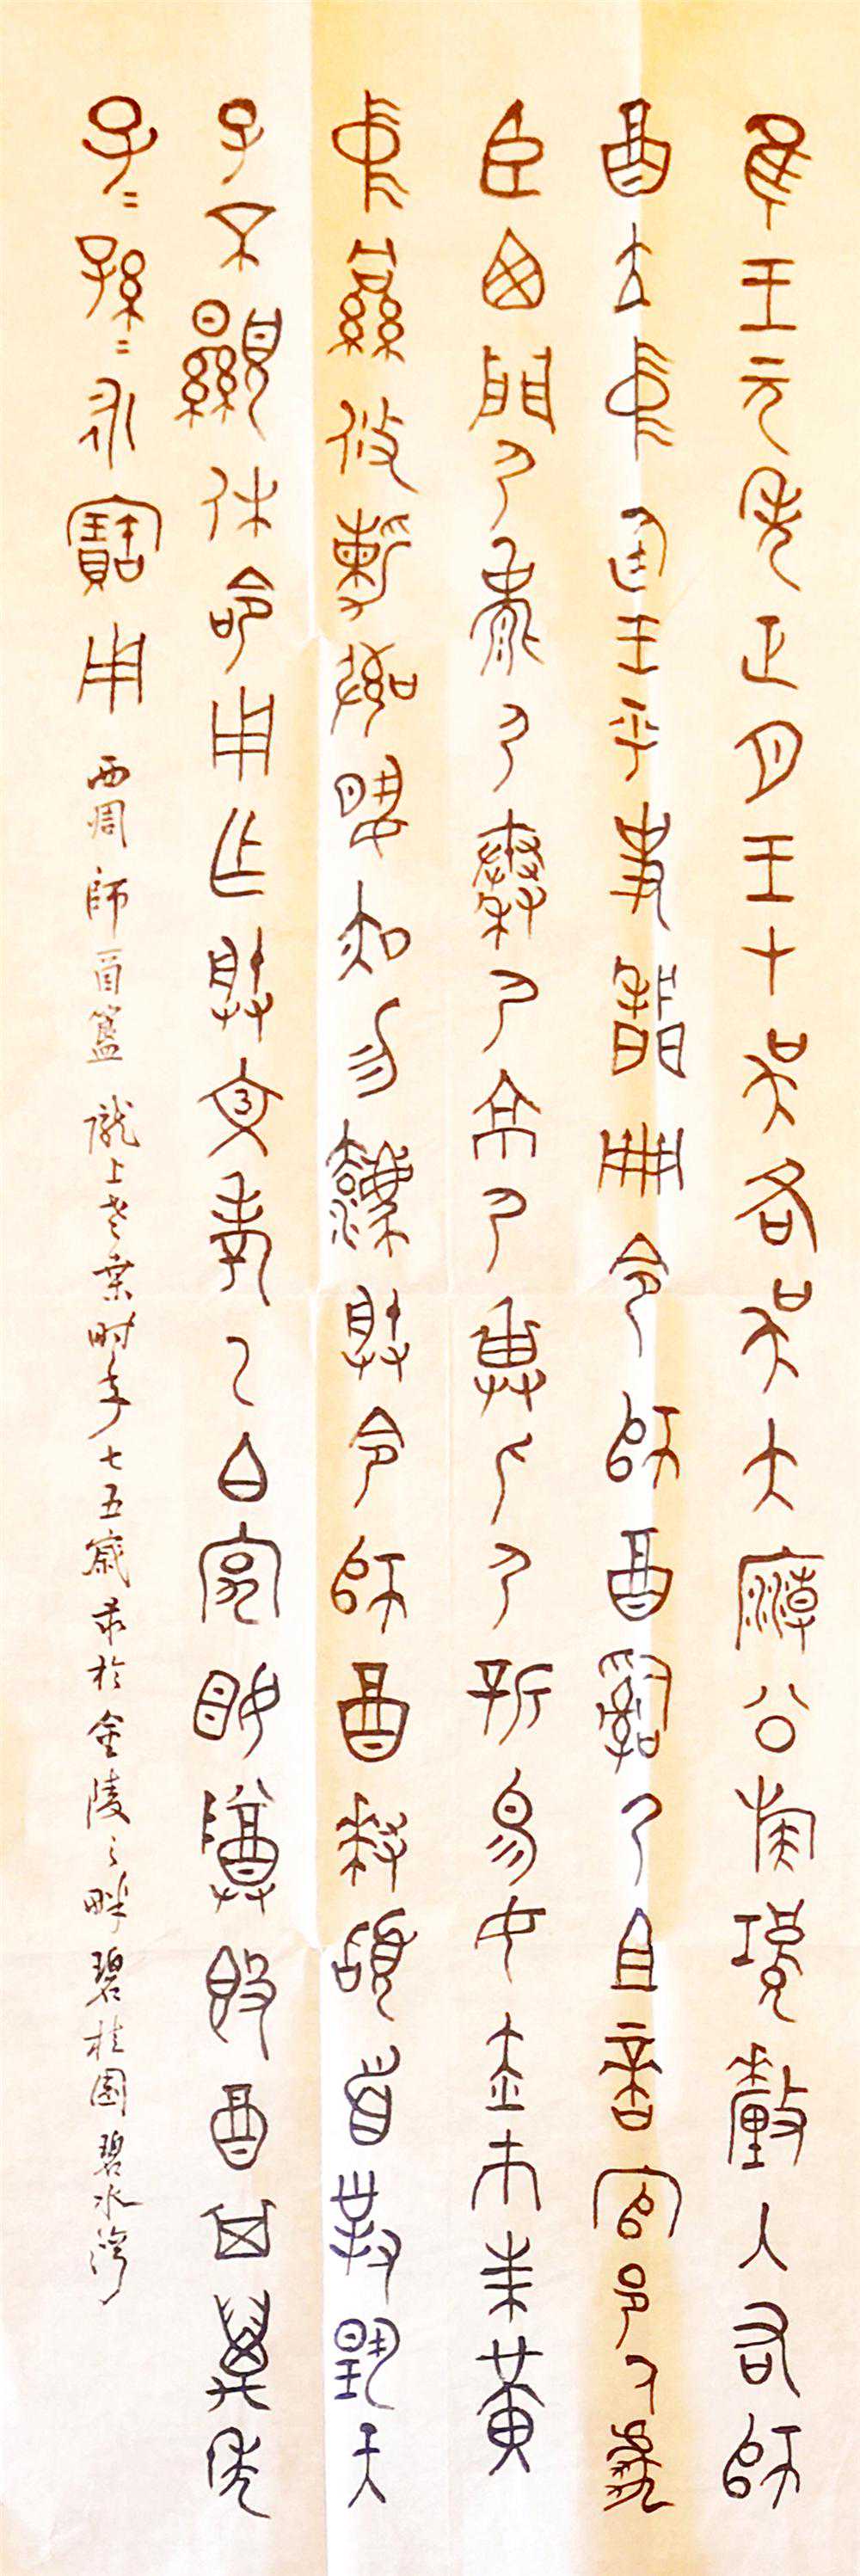 隹王元年正月王才吳各吳大廟公族釐入右師
酉立中廷王乎史冊令師酉𤔲乃且啻官邑人虎
臣西門尸尸秦尸京尸畀身尸新易女赤巿朱黃
中攸勒夙夜勿灋朕令師酉拜𩒨首對揚天
子不顯休命用乍朕文考乙白宄姬尊𣪘酉其萬年
子=孫=永寶用 西周師酉簋 隴上老葉时年七五歲书於金陵之畔碧桂園碧水湾